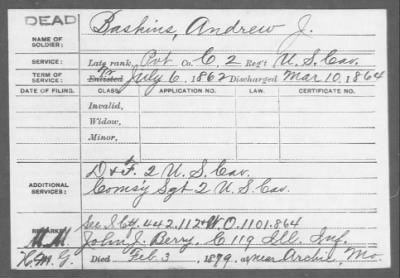 DEAD
NAME OF SOLDIER: Baskins, Andrew J.
SERVICE: Late rank, Pvt Co. C, 2 Reg't U.S. Cav.
TERM OF SERVICE: Enlisted July 6, 1862 Discharged Mar 10, 1864
DATE OF FILING. CLASS. APPLICATION NO. LAW. CERTIFICATE NO.
Invalid,
Widow,
Minor,
ADDITIONAL SERVICES: D & F. 2 U.S. Cav.
Comsy Sgt 2 U.S. Cav.
See S. Ctf. 442.112 & W.O. 1101.864
REMARKS: John J. Berry, C 119 Ill. Inf.
Died Feb 3 1879, at near Archie, Mo.